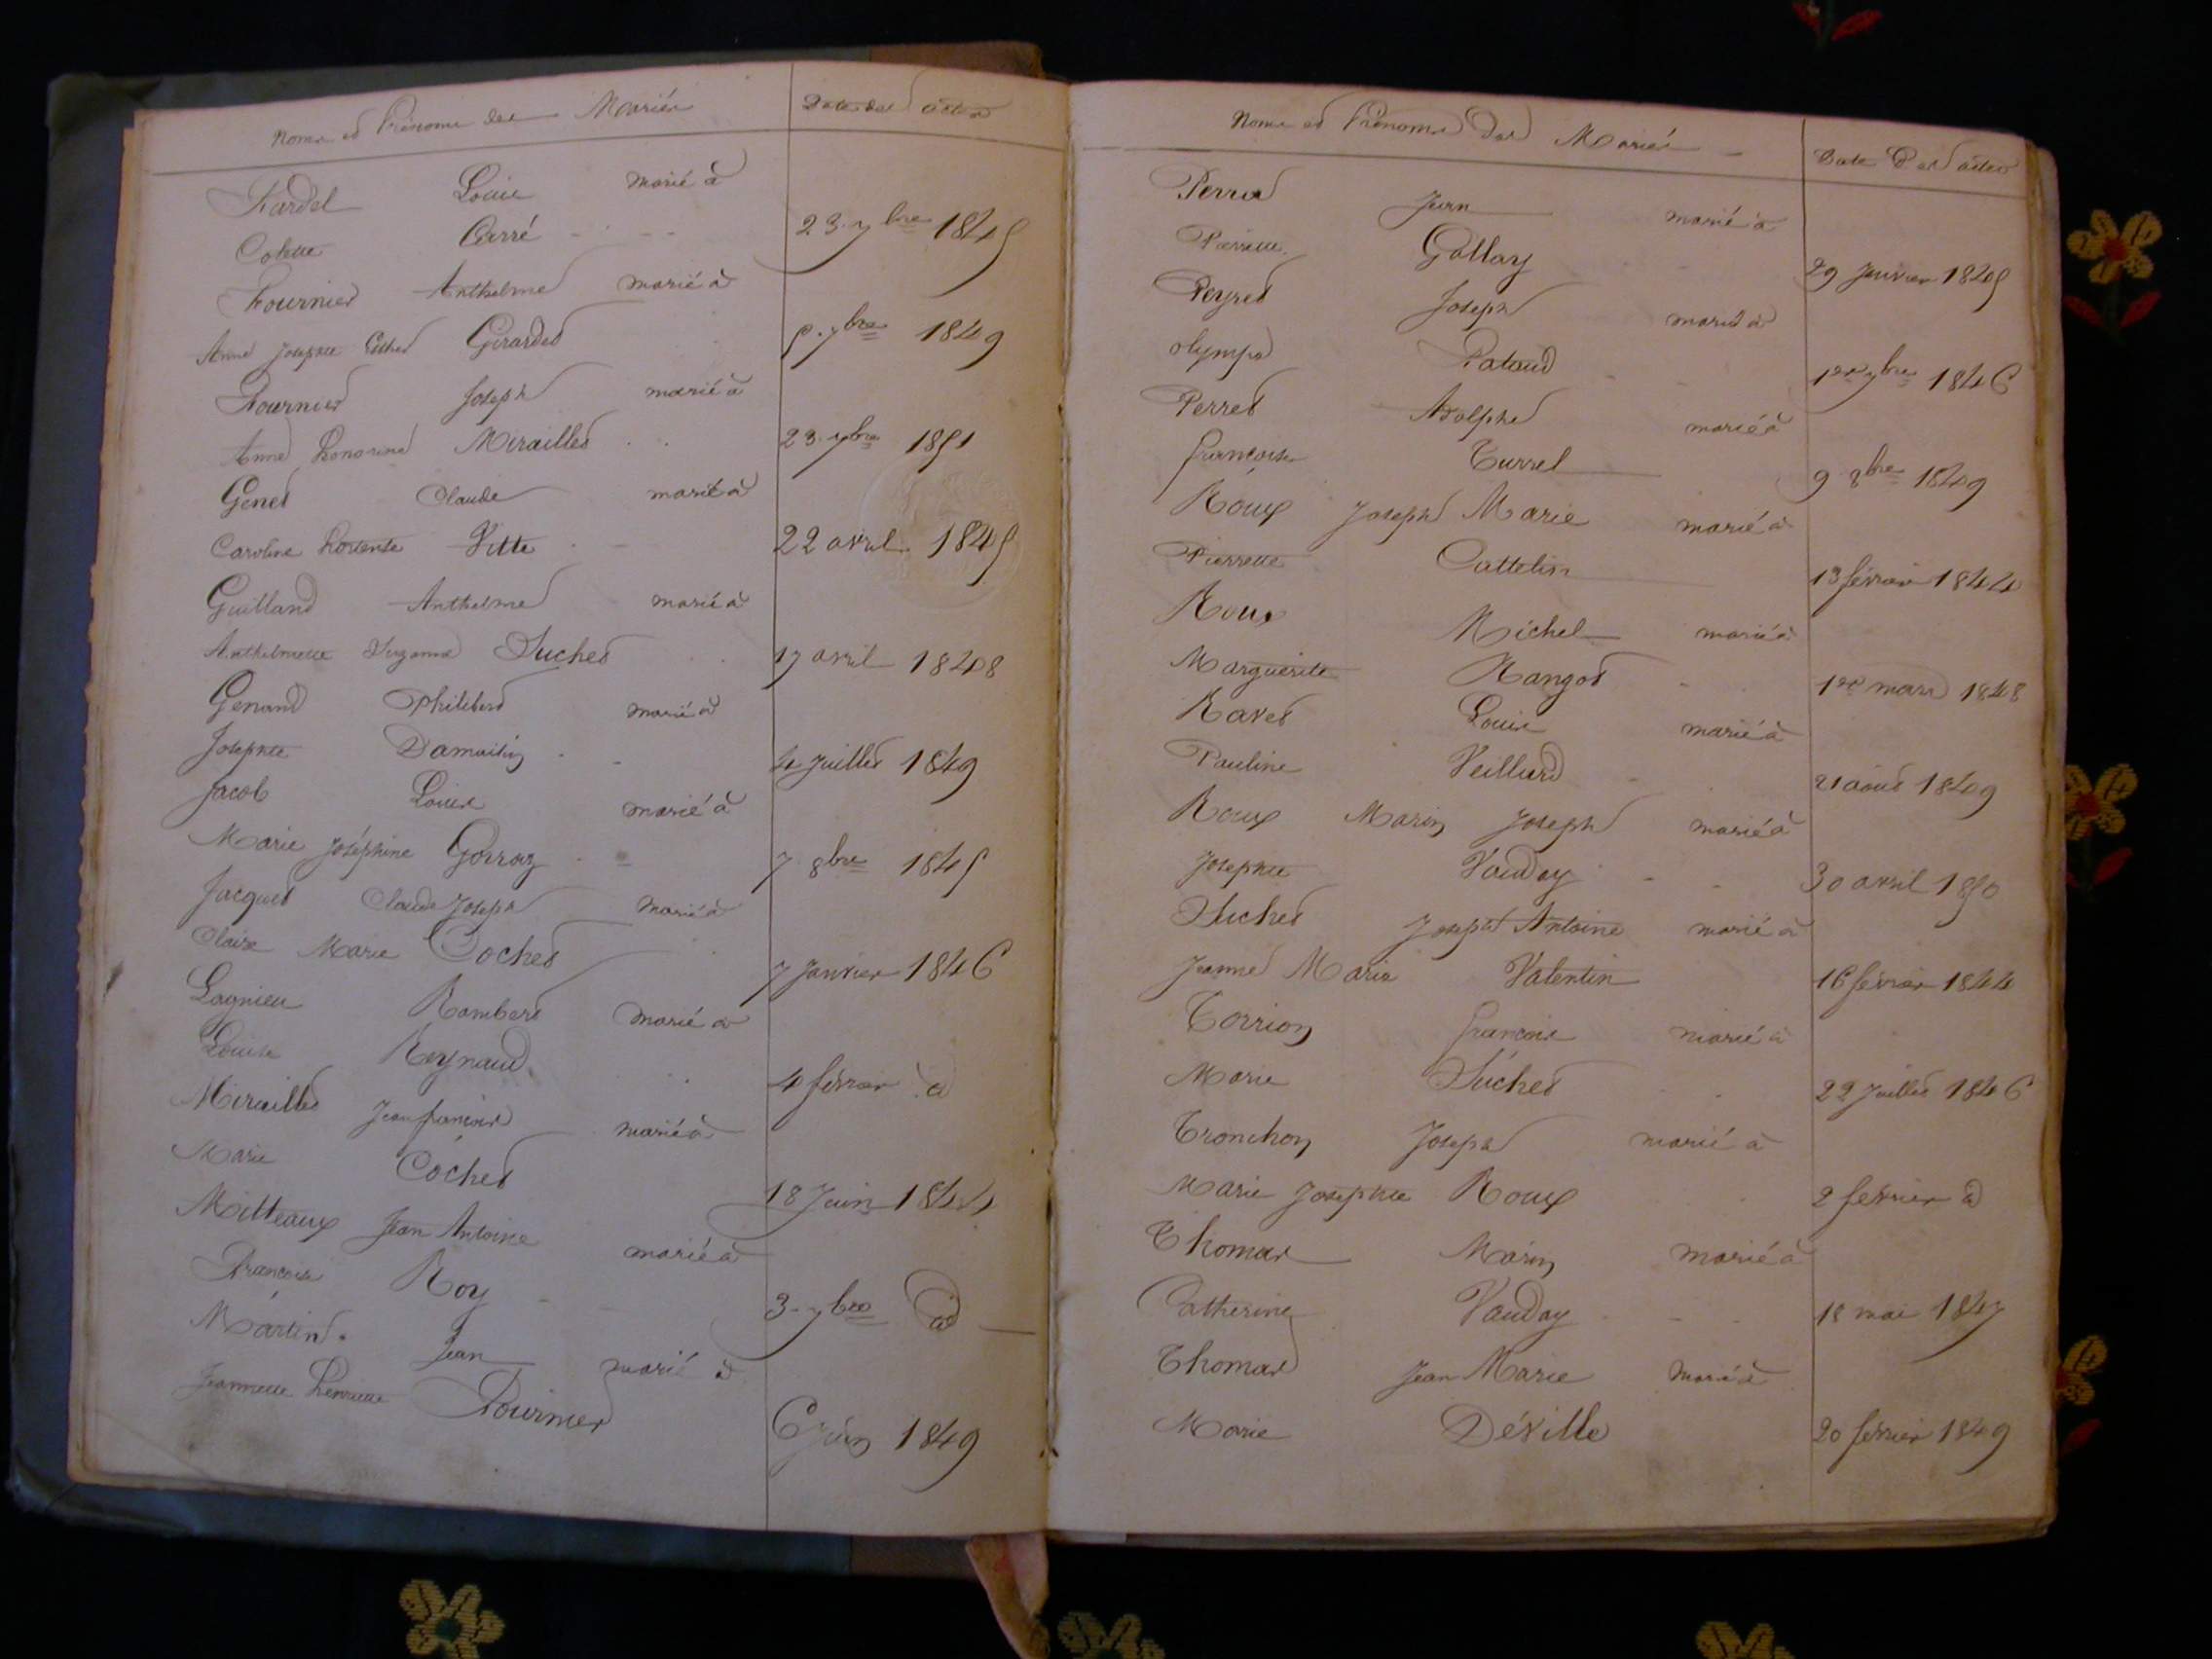 Noms et Prénoms des Mariés
Date des actes
Fardel Louis marié à
Colette Carré 23 7bre 1845
Fournier Anthelme marié à
Anne Josephte Esther Girardet 5 7bre 1849
Fournier Joseph marié à
Anne Honorine Miraillet 23 7bre 1851
Genet Claude marié à
Caroline hortense Vitte 22 avril 1845
Guilland Anthelme marié à
Anthelmette Suzanne Suchet 17 avril 1848
Genand Philibert marié à
Josephte 4 Juillet 1849
Jacob Louis marié à
Marie Joséphine Gorraz 7 8bre 1845
Jacquet Claude Joseph marié à
Claire Marie Cochet 7 Janvier 1846
Lagnieu Rambert marié à
Louise Reynaud 4 février d
Miraillet Jean françois marié à
Marie Cochet 18 Juin 1844
Mitteaux Jean Antoine marié à
Françoise Roy 3 7bre d
Martin Jean marié à
Jeannette henriette Fournier 6 Juin 1849
Noms et Prénoms des Mariés
Date des actes
Perret Jean marié à
Pierrette Gallay 29 Janvier 1845
Peyret Joseph marié à
olympe Pataud 1er 7bre 1846
Perret Adolphe marié à
françoise Turrel 9 8bre 1849
Roux Joseph Marie marié à
Pierrette Cattelin 13 février 1844
Roux Michel marié à
Marguerite Mangot 1er mars 1848
Ravet Louis marié à
Pauline Veillard 21 août 1849
Roux Marin Joseph marié à
Josephte Vauday 30 avril 1850
Suchet Joseph Antoine marié à
Jeanne Marie Valentin 16 février 1844
Torrion françois marié à
Marie Suchet 22 Juillet 1846
Tronchon Joseph marié à
Marie Josephte Roux 2 février d
Thomas Marin marié à
Catherine Vauday 18 mai 1847
Thomas Jean Marie marié à
Marie Déville 20 février 1849